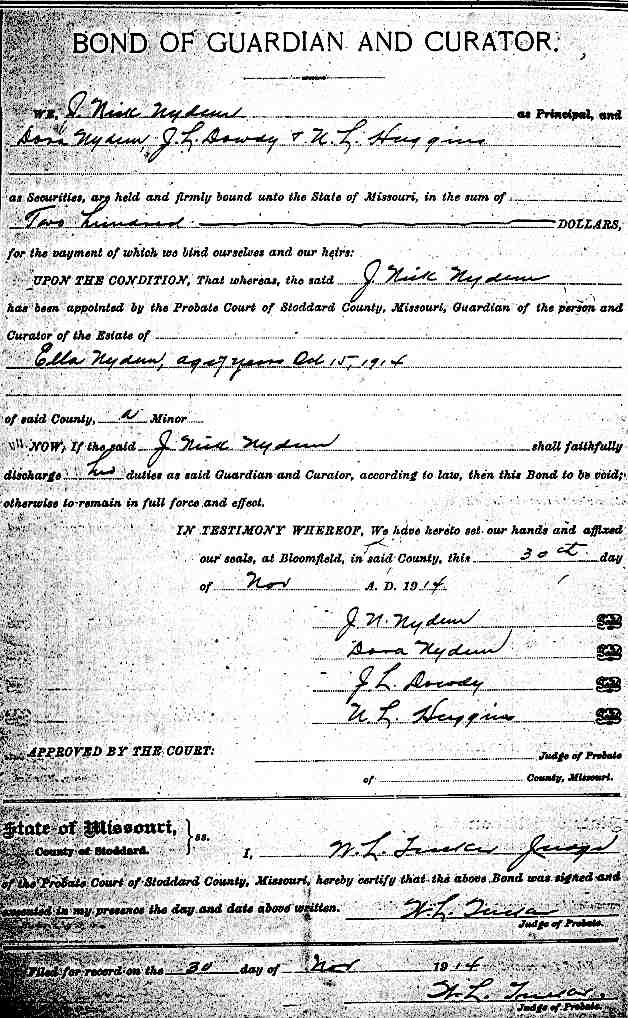 BOND OF GUARDIAN AND CURATOR.
WE, J. Nick Nydem as Principal, and
Dora Nydem, J. L. Dowdy & N. L. Huggins
as Securities, are held and firmly bound unto the State of Missouri, in the sum of
Two hundred DOLLARS,
for the payment of which we bind ourselves and our heirs:
UPON THE CONDITION, That whereas, the said J Nick Nydem
has been appointed by the Probate Court of Stoddard County, Missouri, Guardian of the person and
Curator of the Estate of
Ella Nydem, age 7 years Oct 15, 1914
of said County, a Minor
NOW, If the said J Nick Nydem shall faithfully
discharge his duties as said Guardian and Curator, according to law, then this Bond to be void;
otherwise to remain in full force and effect.
IN TESTIMONY WHEREOF, We have hereto set our hands and affixed
our seals, at Bloomfield, in said County, this 30th day
of Nov A. D. 1914
J. N. Nydem
Dora Nydem
J L Dowdy
N. L. Huggins
APPROVED BY THE COURT:
Judge of Probate
of County, Missouri.
State of Missouri,
County of Stoddard. } ss.
I, W. L. Judge
of the Probate Court of Stoddard County, Missouri, hereby certify that the above Bond was signed and
executed in my presence the day and date above written. W. L.
Judge of Probate.
Filed for record on the 30 day of Nov 1914
W. L.
Judge of Probate.